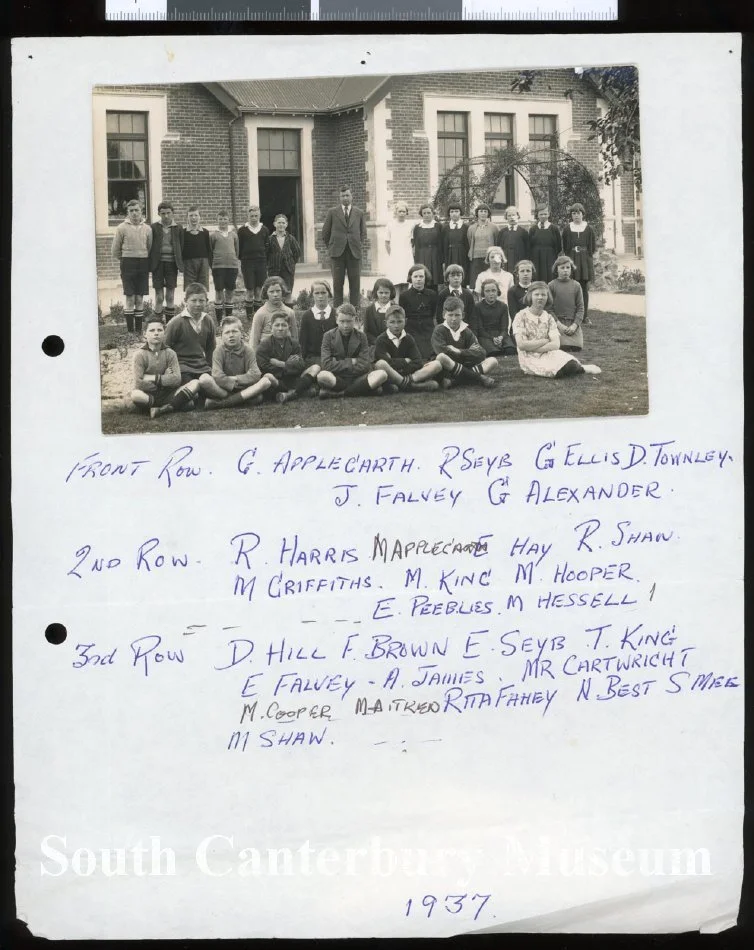 FRONT ROW. G. APPLEGARTH. R SEYB G ELLIS D. TOWNLEY.
J. FALVEY G ALEXANDER.
2ND ROW. R. HARRIS M APPLEGARTH E HAY R. SHAW.
M GRIFFITHS. M. KING M. HOOPER.
E. PEEBLES. M HESSELL
3rd ROW D. HILL F. BROWN E. SEYB T. KING
E FALVEY - A. JAMES. MR CARTWRIGHT
M. COOPER M AITKEN RITA FAHEY N. BEST S MEE
M SHAW.
South Canterbury Museum
1937.